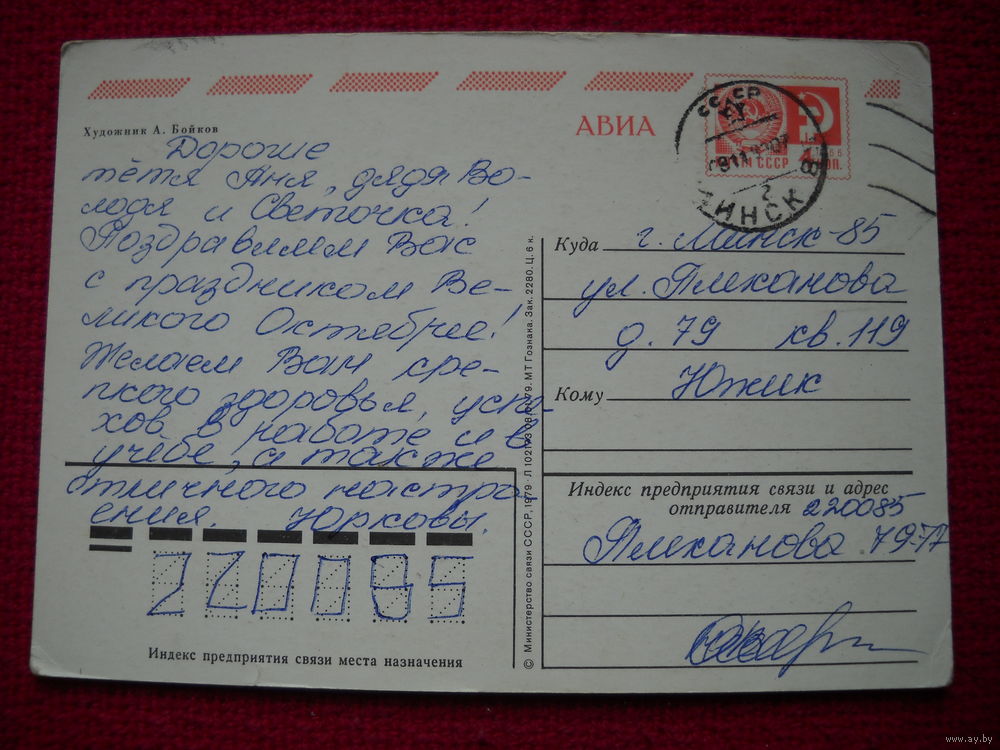 Художник А. Бойков
АВИА
ПОЧТА СССР
СССР
МИНСК
Дорогие
тётя Аня, дядя Во-
лодя и Светочка!
Поздравляем Вас
с праздником Ве-
ликого Октября!
Желаем Вам кре-
пкого здоровья, успе-
хов в работе и в
учёбе, а также
отличного настро-
ения. Юрковы.
220085
Индекс предприятия связи места назначения
© Министерство связи СССР, 1979 Л 102123 МТ Гознака. Зак. 2280. Ц. 6 к.
Куда г. Минск-85
ул. Плеханова
д. 79 кв. 119
Кому Южик
Индекс предприятия связи и адрес
отправителя 220085
Плеханова 79-77
www.ay.by